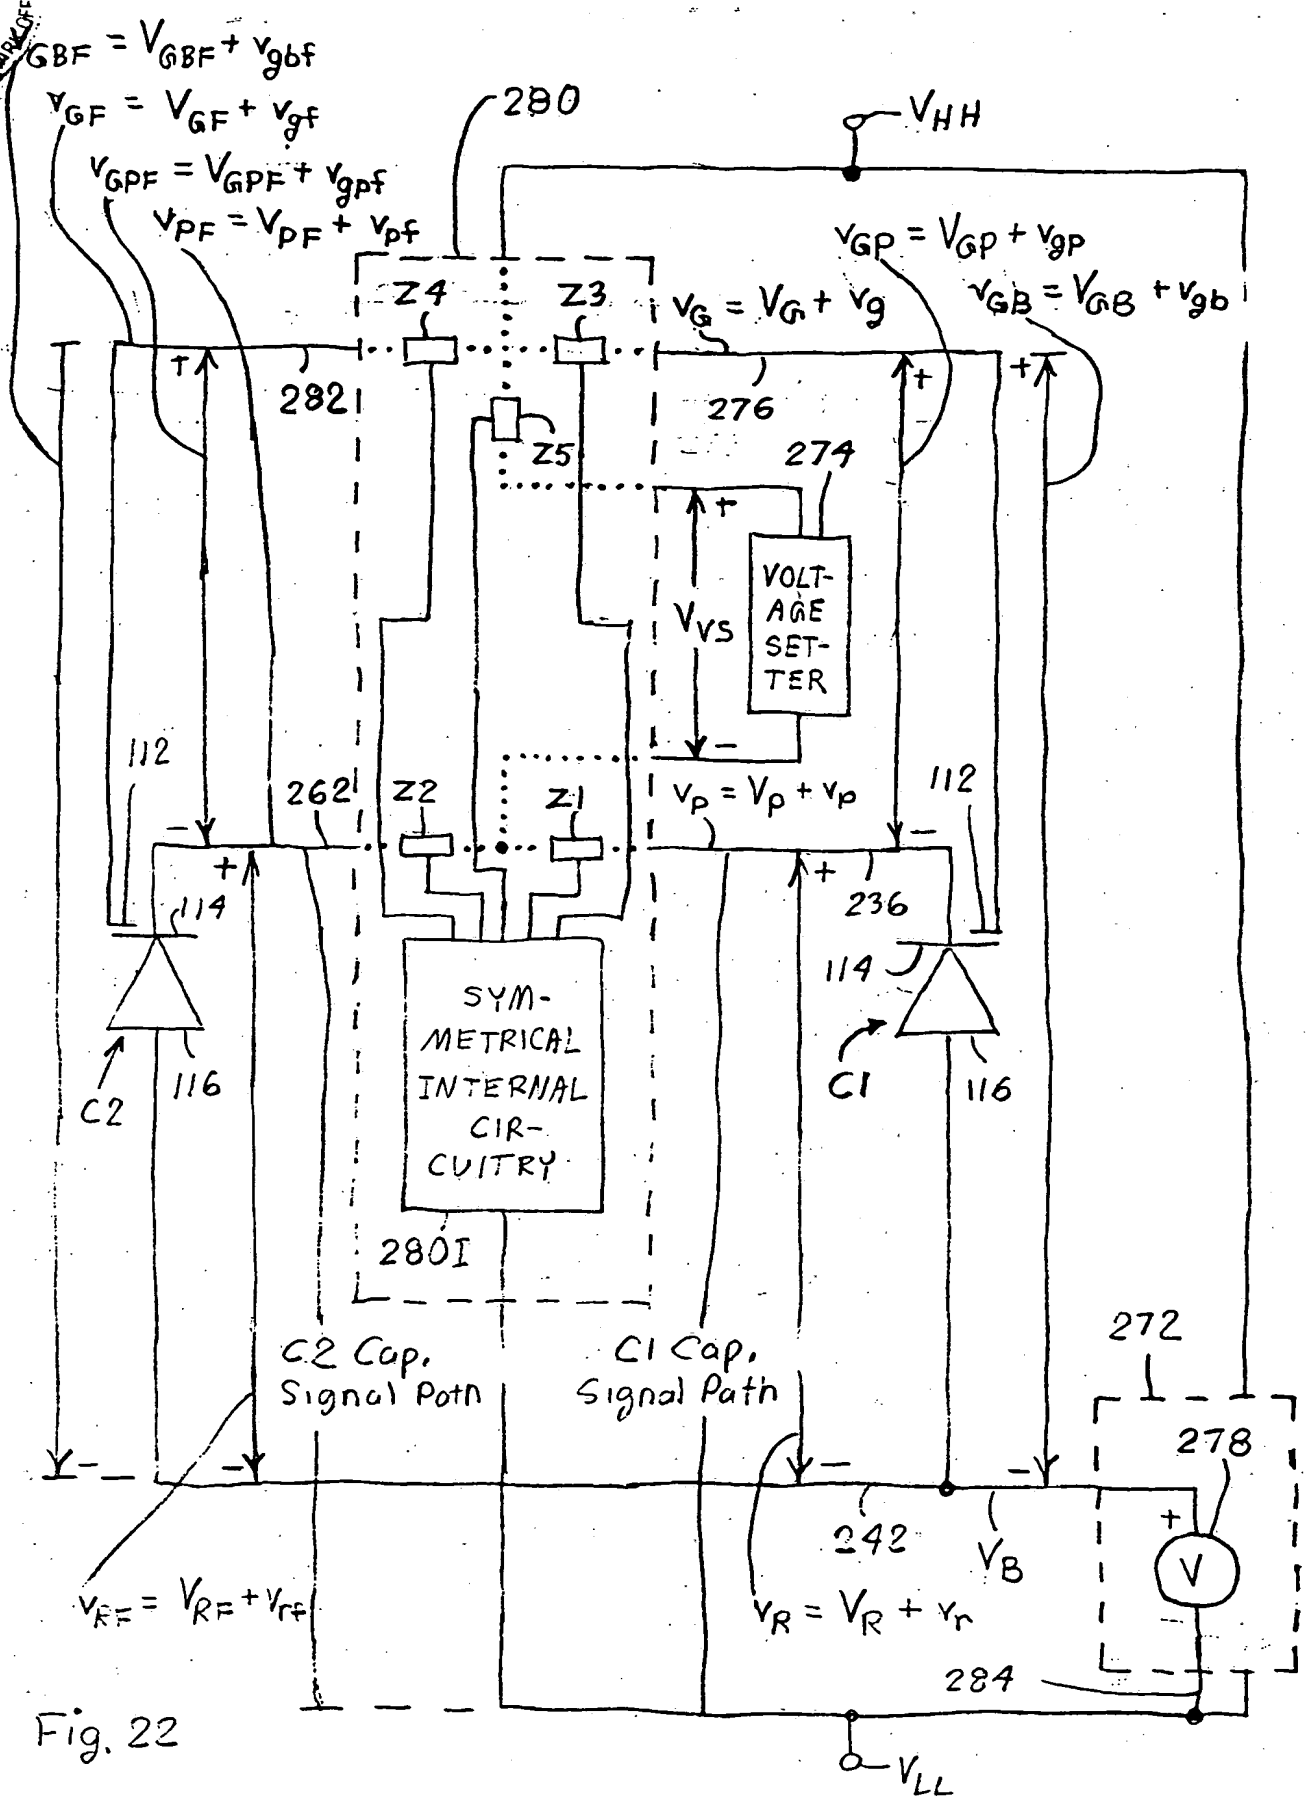 GBF = VGBF + vgbf
vGF = VGF + vgf
vGPF = VGPF + vgpf
vPF = VPF + vpf
280
VHH
vGP = VGP + vgp
vGB = VGB + vgb
Z4
Z3
vG = VG + vg
+
+
+
282
276
Z5
274
+
VVS
VOLT-
AGE
SET-
TER
−
112
262
Z2
Z1
vP = VP + vp
112
−
+
−
+
236
114
114
C2
116
C1
116
SYM-
METRICAL
INTERNAL
CIR-
CUITRY
280I
C2 Cap.
Signal Path
C1 Cap.
Signal Path
272
278
−
−
−
−
242
VB
+
V
vRF = VRF + vrf
vR = VR + vr
284
Fig. 22
VLL